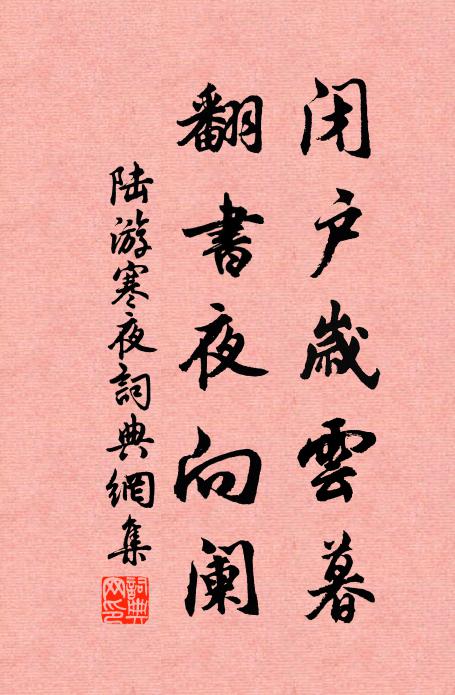 闭户歲雲暮
翻書夜向阑
陆游寒夜詞典網集
詞典網印